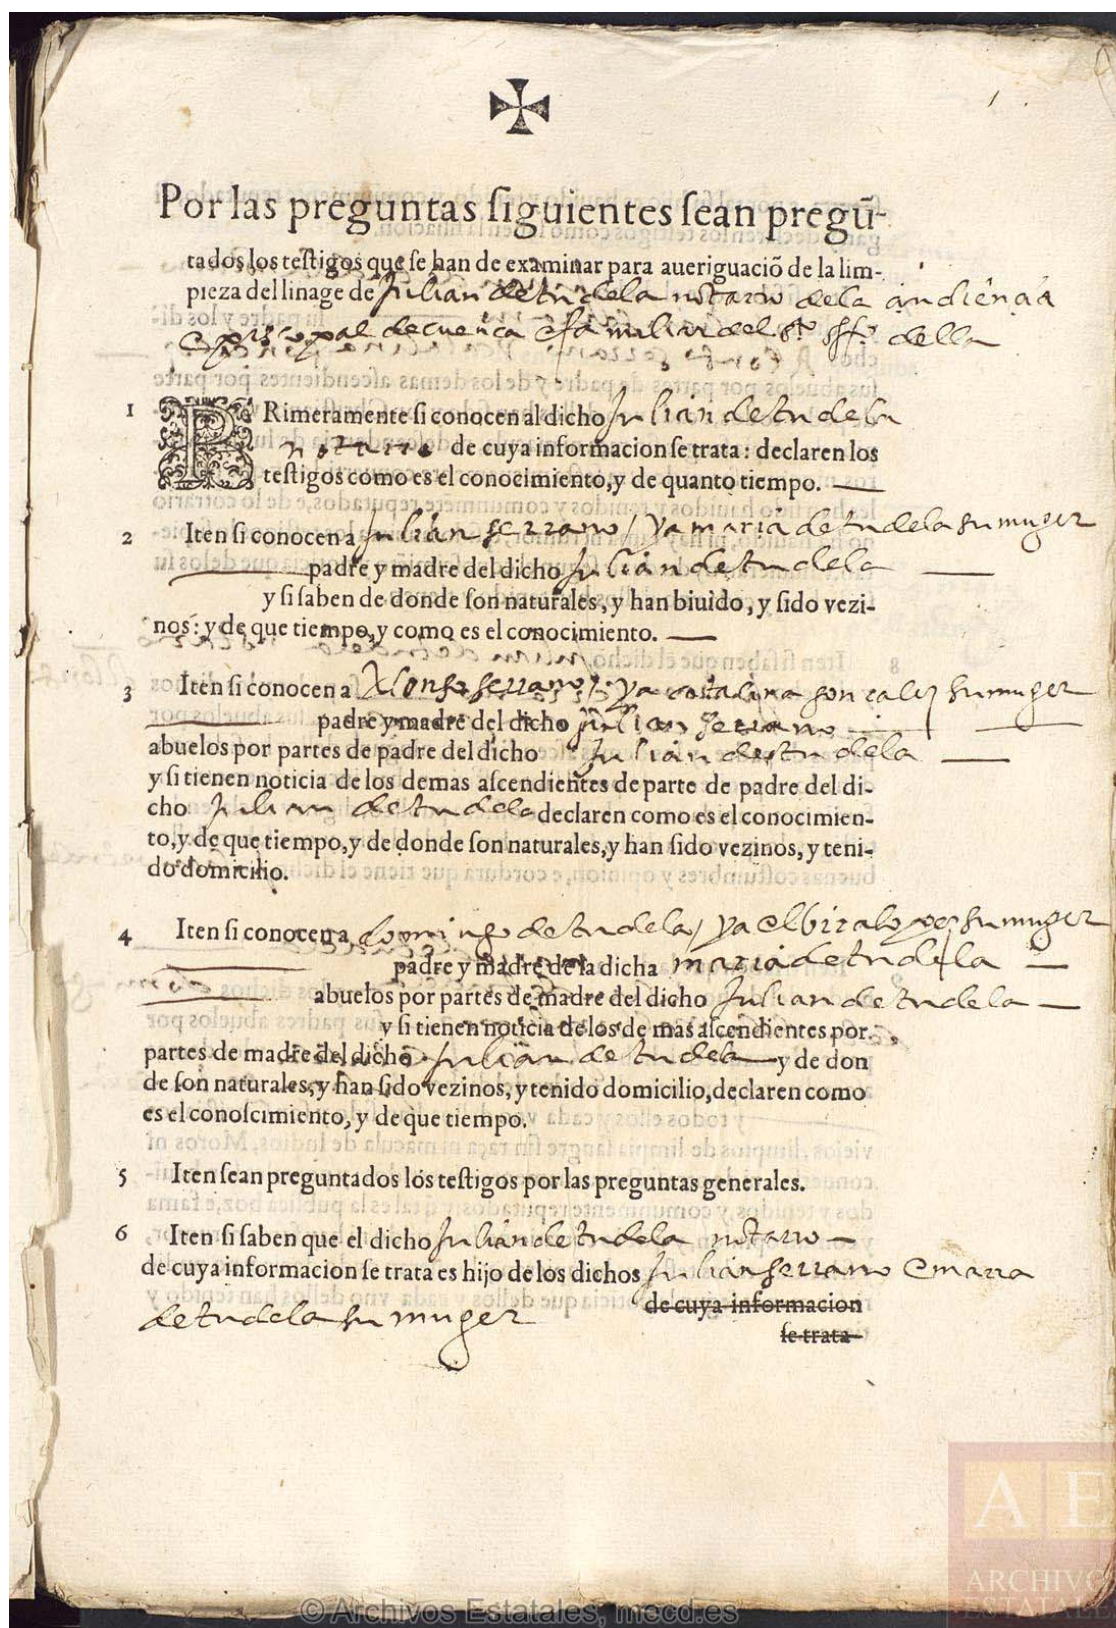 1
Por las preguntas ſiguientes ſean pregū-
tados los teſtigos que ſe han de examinar para aueriguaciõ de la lim-
pieza del linage de Julian de tudela notario dela audiençia
episcopal de cuenca e familiar del sto offo della
1 PRimeramente ſi conocen al dicho Julian de tudela
notario de cuya informacion ſe trata: declaren los
teſtigos como es el conocimiento, y de quanto tiempo.
2 Iten ſi conocen a Julian serrano / ya maria de tudela su muger
padre y madre del dicho Julian de tudela
y ſi ſaben de donde ſon naturales, y han biuido, y ſido vezi-
nos: y de que tiempo, y como es el conocimiento.
3 Iten ſi conocen a Alonso serrano / ya catalina gonçalez su muger
padre y madre del dicho Julian serrano
abuelos por partes de padre del dicho Julian de tudela
y ſi tienen noticia de los demas aſcendientes de parte de padre del di-
cho Julian de tudela declaren como es el conocimien-
to, y de que tiempo, y de donde ſon naturales, y han ſido vezinos, y teni-
do domicilio.
4 Iten ſi conocen a domingo de tudela / ya elbira lopez su muger
padre y madre de la dicha maria de tudela
abuelos por partes de madre del dicho Julian de tudela
y ſi tienen noticia de los de mas aſcendientes por
partes de madre del dicho Julian de tudela y de don
de ſon naturales, y han ſido vezinos, y tenido domicilio, declaren como
es el conoſcimiento, y de que tiempo.
5 Iten ſean preguntados los teſtigos por las preguntas generales.
6 Iten ſi ſaben que el dicho Julian de tudela notario
de cuya informacion ſe trata es hijo de los dichos Julian serrano e maria
de tudela su muger de cuya informacion
ſe trata
AE
ARCHIVO
ESTATALE
© Archivos Estatales, mecd.es